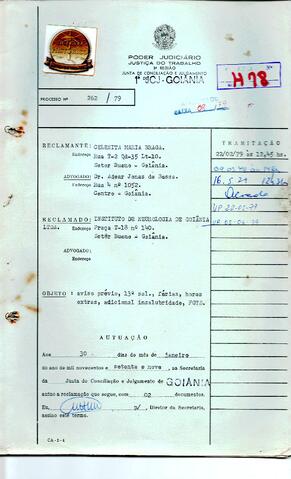 PODER JUDICIÁRIO
JUSTIÇA DO TRABALHO
3ª REGIÃO
JUNTA DE CONCILIAÇÃO E JULGAMENTO
1ª JCJ - GOIÂNIA
H 78
PROCESSO Nº 262 / 79
RECLAMANTE: CELENITA MARIA BRAGA.
Endereço Rua T-2 Qd-35 Lt-10.
Setor Bueno - Goiânia.
ADVOGADO: Dr. Ademar Jonas de Souza.
Endereço Rua 4 nº 1052.
Centro - Goiânia.
TRAMITAÇÃO
22/02/79 às 12,45 hs.
16.5.79
RECLAMADO: INSTITUTO DE NEUROLOGIA DE GOIÂNIA
LTDA. Endereço Praça T-18 nº 140.
Setor Bueno - Goiânia.
ADVOGADO:
Endereço
OBJETO: aviso prévio, 13º sal., férias, horas
extras, adicional insalubridade, FGTS.
AUTUAÇÃO
Aos 30 dias do mês de janeiro
do ano de mil novecentos e setenta e nove, na Secretaria
da Junta de Conciliação e Julgamento de GOIÂNIA
autuo a reclamação que segue, com 02 documentos.
Eu, Diretor da Secretaria,
assino este termo.